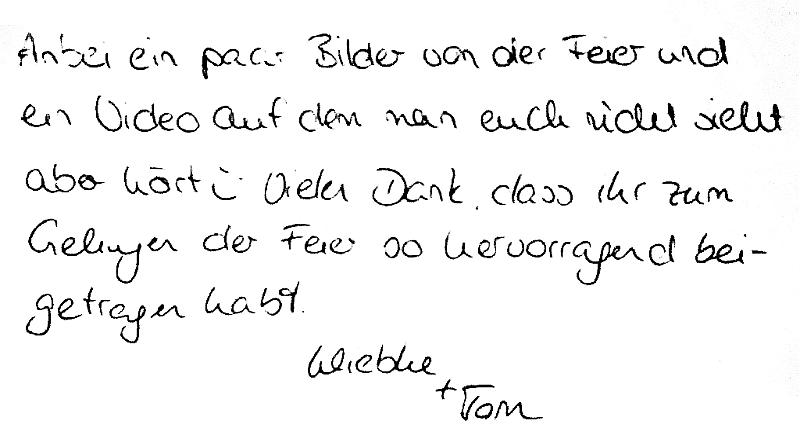 Anbei ein paar Bilder von der Feier und
ein Video auf dem man euch nicht sieht
aber hört :) Vielen Dank, dass ihr zum
Gelingen der Feier so hervorragend bei-
getragen habt.
Wiebke
+ Tom